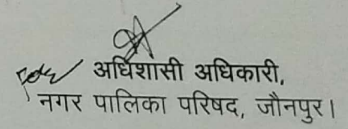 अधिशासी अधिकारी,
नगर पालिका परिषद, जौनपुर।